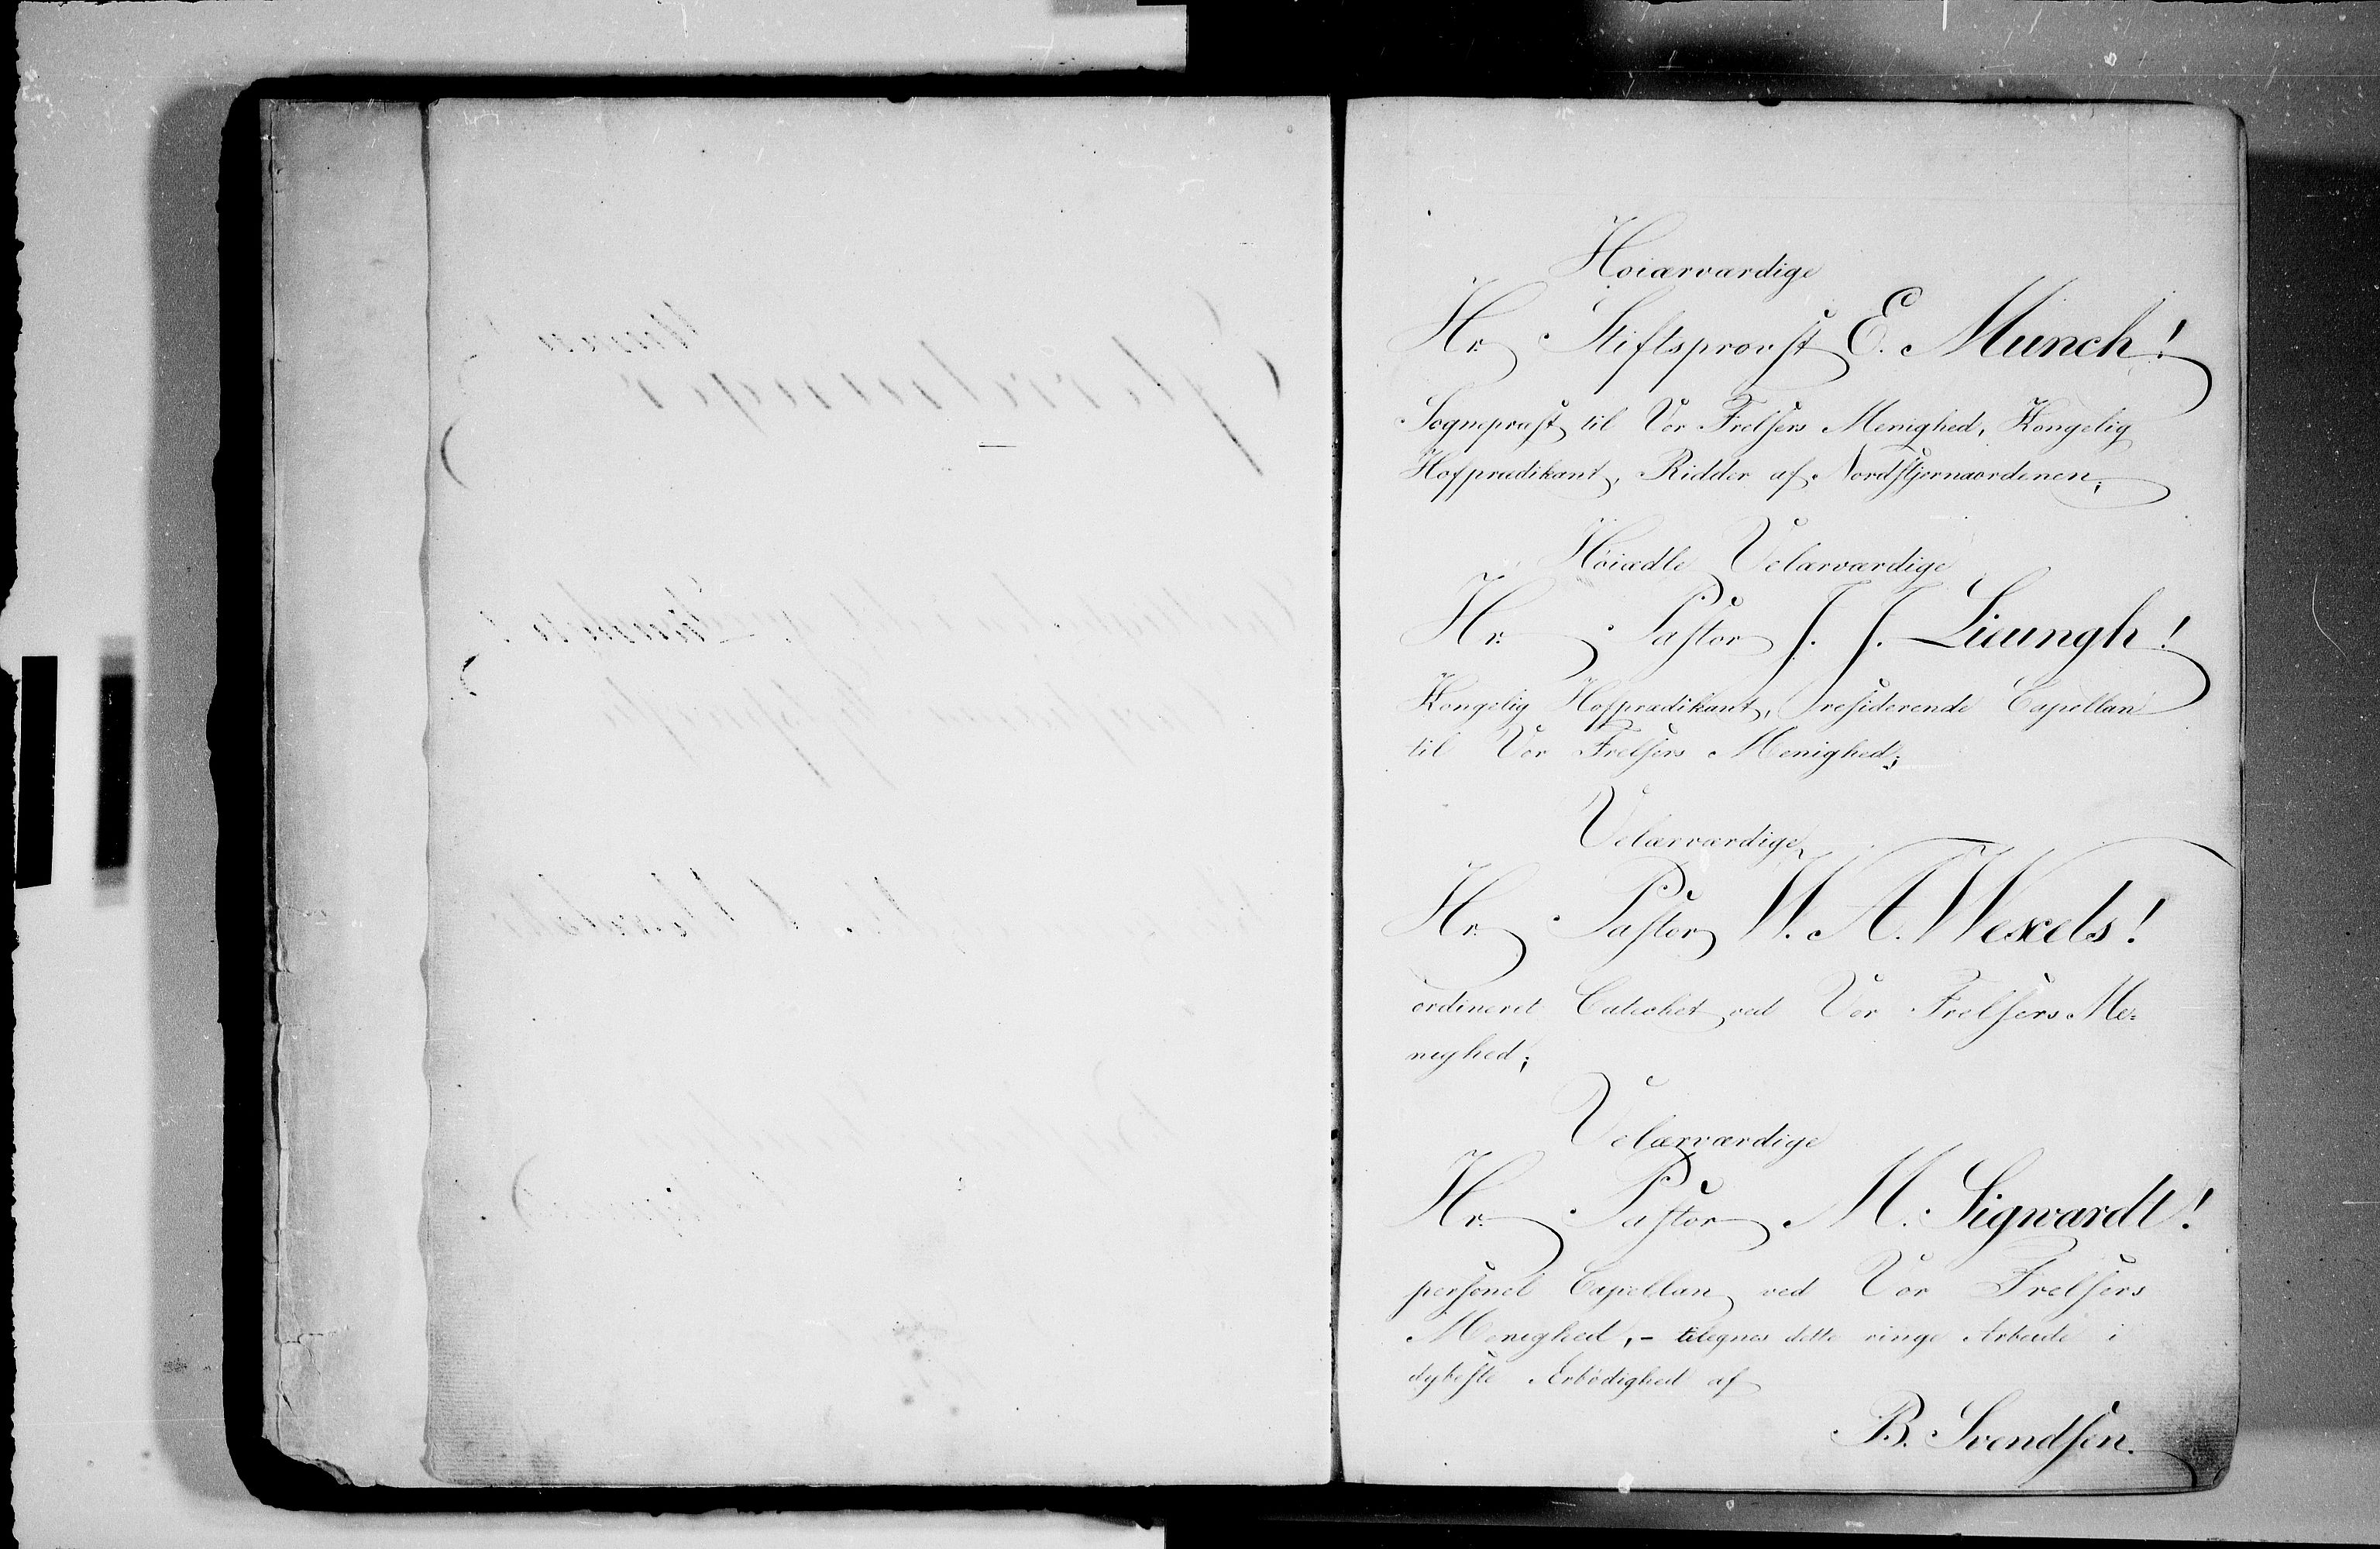 Høiærværdige
Hr. Stiftsprovst E. Munch!
Sognepræst til Vor Frelsers Menighed, Kongelig
Hofprædikant, Ridder af Nordstjernaordenen;
Høiædle Velærværdige
Hr. Pastor J. J. Lieungh!
Kongelig Hofprædikant, Presiderende Capellan
til Vor Frelsers Menighed;
Velærværdige
Hr. Pastor W. A. Wexels!
ordineret Catechet ved Vor Frelsers Me-
nighed;
Velærværdige
Hr. Pastor M. Sigwardt!
personel Capellan ved Vor Frelsers
Menighed, - tilegnes dette ringe Arbeide i
dybeste Ærbødighed af
B. Svendsen.